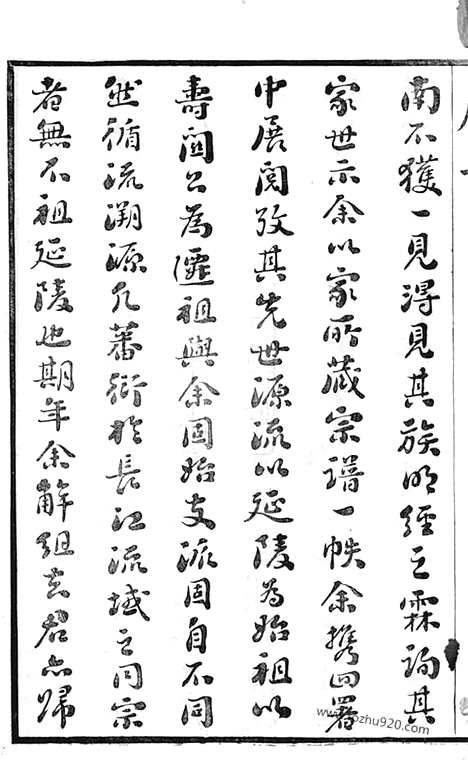 南不獲一見得見其族明經之霖詢其
家世示余以家所藏宗譜一帙余攜回署
中展閱攷其先世源流以延陵為始祖以
壽閭公為遷祖與余固始支派固自不同
然循流溯源凡蕃衍於長江流域之同宗
者無不祖延陵也期年余解組去君亦歸
www.pozhu920.com